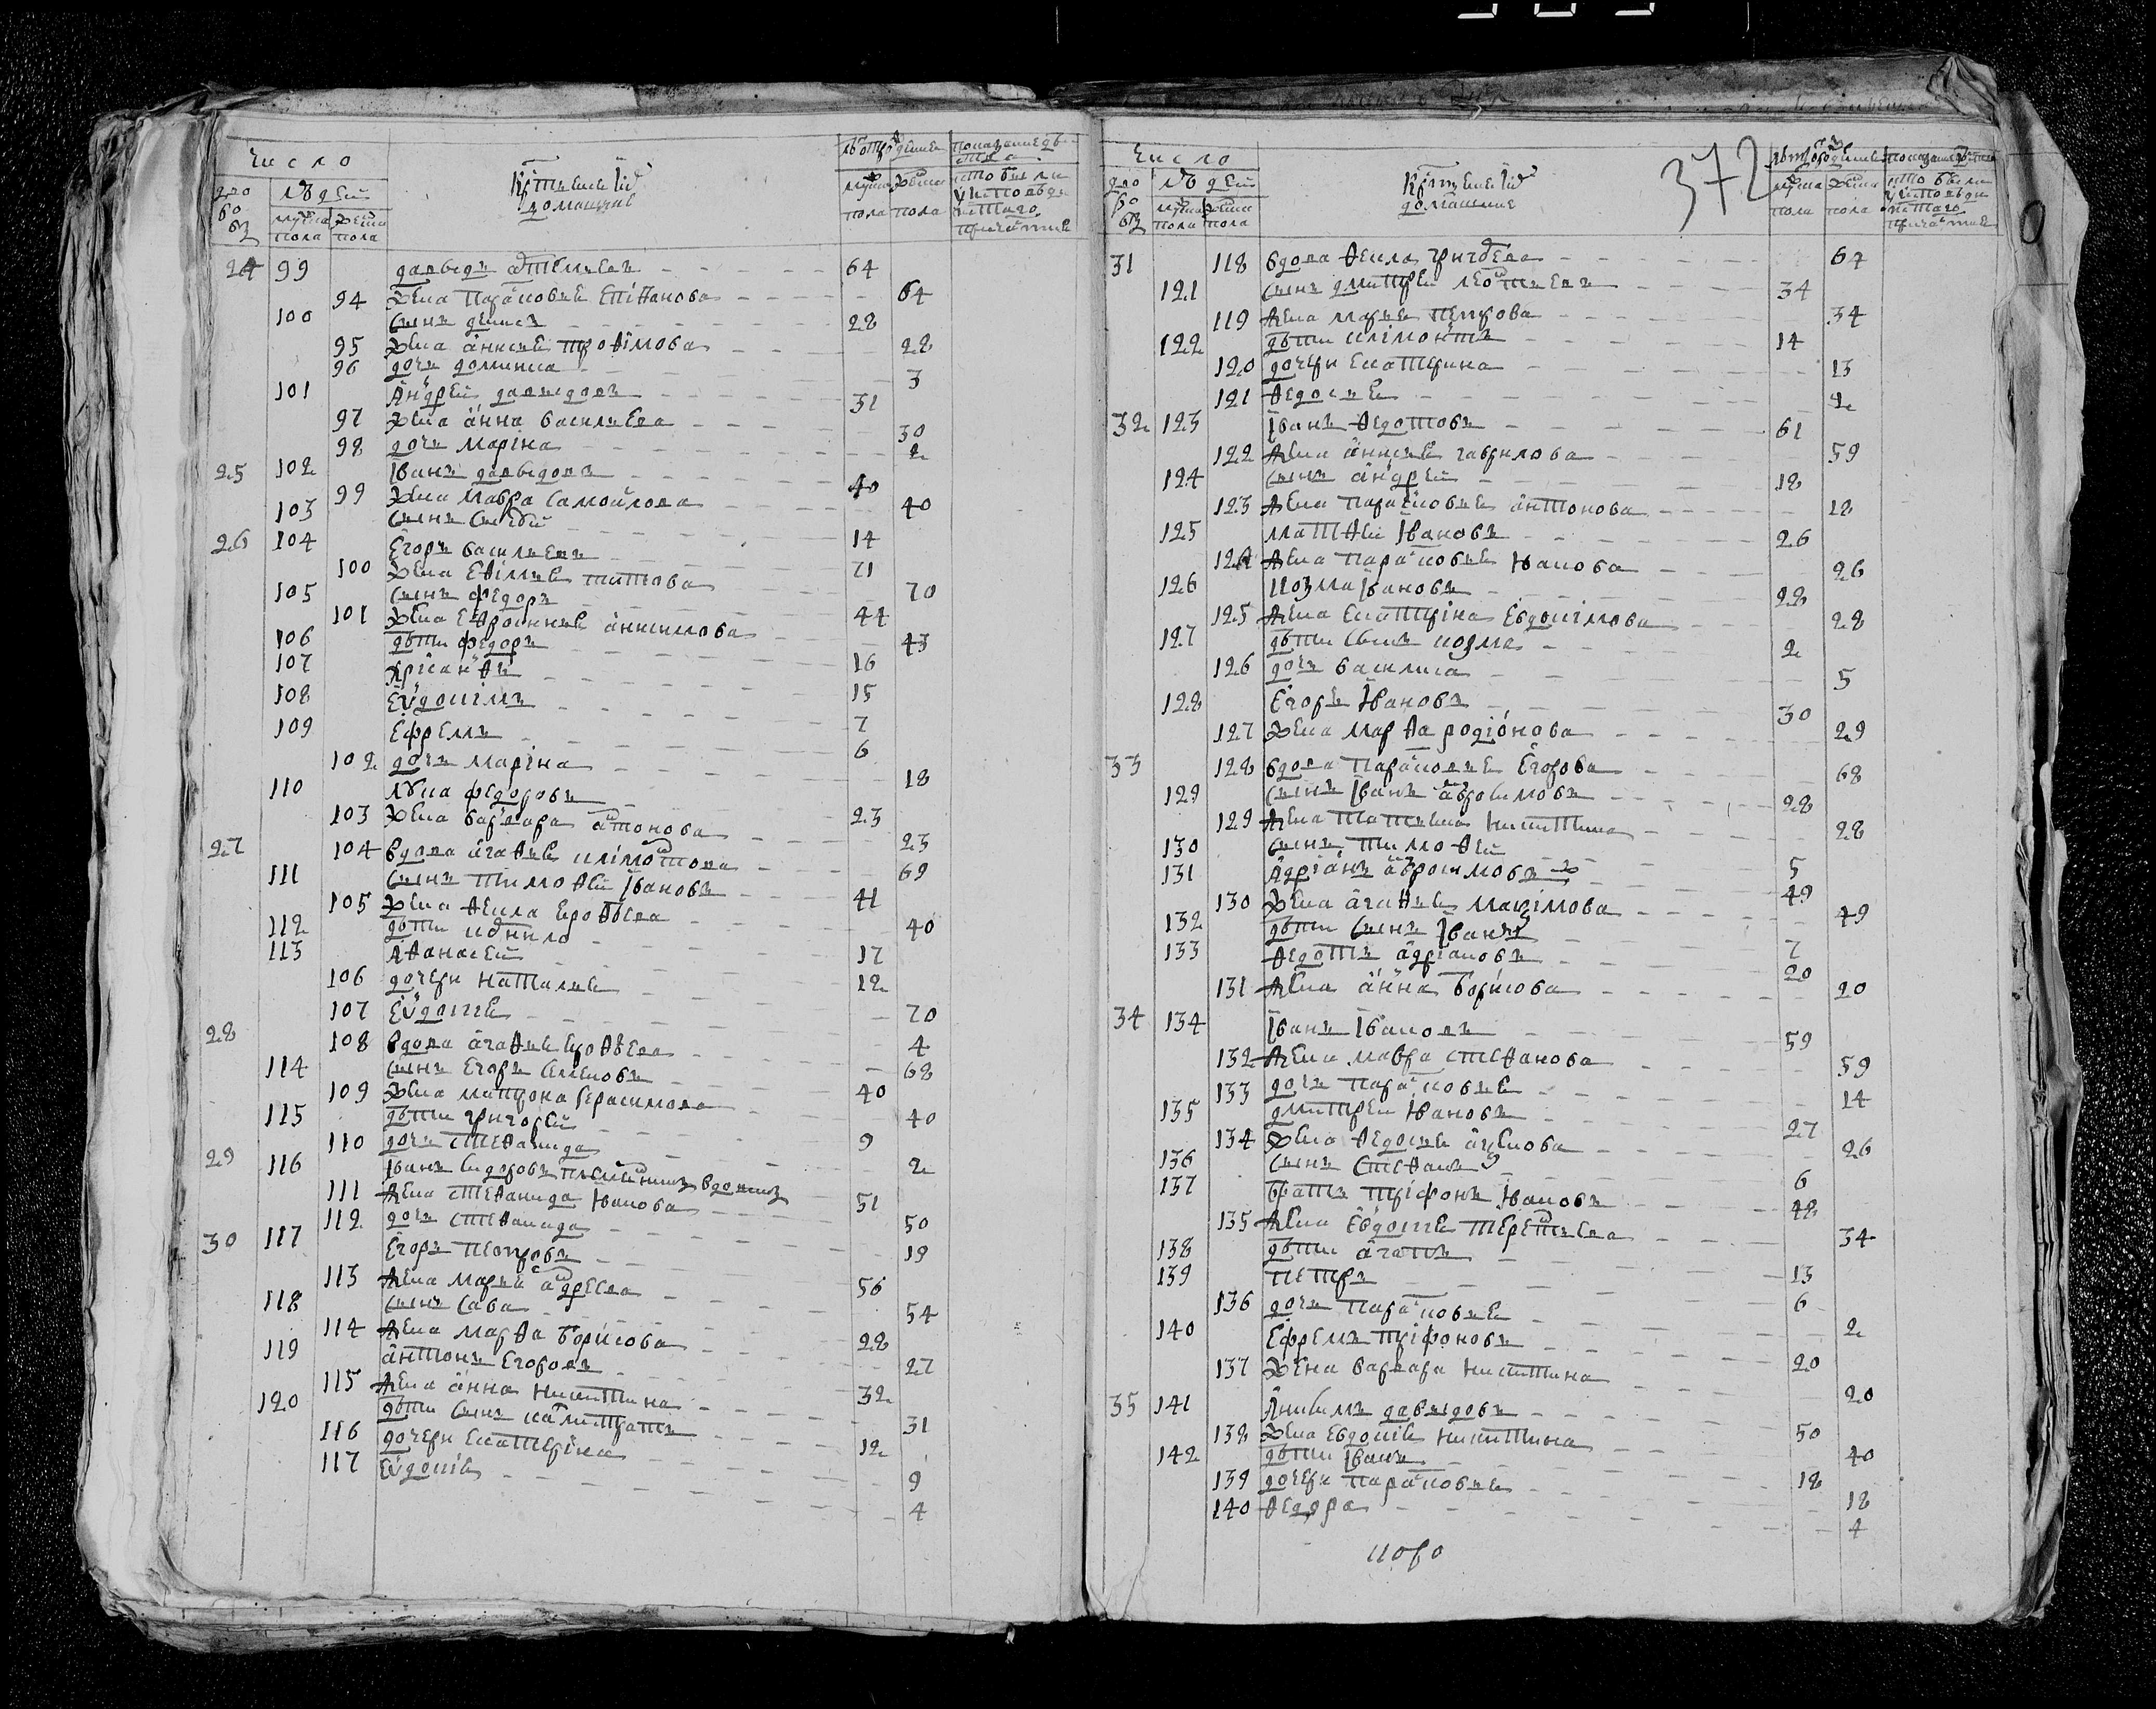 Число
дворовъ
людей
мужска пола
женска пола
Крестьяне и ихъ домашние
лѣтъ
мужска пола
женска пола
24 99 давыдъ 64
94 жена парасковья Епіѳанова 64
100 сынъ денисъ 28
95 жена анисья троѳімова 28
96 дочь домника 3
101 Андрей давыдовъ 31
97 жена анна васильева 30
98 дочь марина 2
25 102 Іванъ давыдовъ 40
99 жена мавра самойлова 40
103 сынъ 14
26 104 Егоръ васильевъ 71
100 жена Еѳімья титова 70
105 сынъ федоръ 44
101 жена Ефросинья анисимова 43
106 дѣти федоръ 16
107 хрисанѳъ 15
108 Евдокимъ 7
109 Ефремъ 6
102 дочь марина 18
110 лука федоровъ 23
103 жена варвара антонова 23
27 104 вдова агаѳья клімонтова 69
111 сынъ тимоѳѣй Івановъ 41
105 жена ѳекла ероѳѣева 40
112 дѣти 17
113 Аѳанасей 12
106 дочери наталья 70
107 Евдокія 4
28 108 вдова агаѳья ероѳѣева 68
114 сынъ Егоръ семеновъ 40
109 жена матрона герасимова 40
115 дѣти григорей 9
110 дочь степанида 2
29 116 Іванъ сидоровъ племянникъ 51
111 жена степанида Іванова 50
112 дочь степанида 19
30 117 Егоръ петровъ 56
113 жена марья андреева 54
118 сынъ сава 28
114 жена марѳа борисова 27
119 антонъ Егоровъ 32
115 жена анна никитина 31
120 дѣти сынъ калистратъ 12
116 дочери екатерина 9
117 Евдокія 4
372
Число
дворовъ
людей
мужска пола
женска пола
Крестьяне и ихъ домашние
мужска пола
женска пола
31 118 вдова ѳекла григорьева 67
121 сынъ дмитрей леонтьевъ 34
119 жена марья петрова 34
122 дѣти клімонтъ 14
120 дочери екатерина 13
121 ѳедосья 2
32 123 Іванъ ѳедотовъ 61
122 жена анисья гаврилова 59
124 сынъ андрей 18
123 жена парасковья антонова 18
125 матѳѣй Івановъ 26
124 жена парасковья Іванова 26
126 козма Івановъ 28
125 жена екатерина Евдокимова 28
127 дѣти сынъ козма 2
126 дочь василиса 5
128 Егоръ Івановъ 30
127 жена марѳа родіонова 29
33 128 вдова парасковья Егорова 68
129 сынъ Іванъ авросимовъ 28
129 жена татьяна никитина 28
130 сынъ тимоѳѣй 5
131 Адріанъ авросимовъ 49
130 жена агаѳья максімова 49
132 дѣти сынъ Іванъ 7
133 ѳедотъ адріановъ 20
131 жена анна борисова 20
34 134 Іванъ Івановъ 59
132 жена мавра степанова 59
133 дочь парасковья 14
135 дмитрей Івановъ 27
134 жена ѳедосья 26
136 сынъ стеѳанъ 6
137 братъ трифонъ Івановъ 42
135 жена Евдокія терентьева 34
138 дѣти агапъ 13
139 петръ 6
136 дочь парасковья 2
140 Ефремъ трифоновъ 20
137 жена варвара никитина 20
35 141 Анисимъ давыдовъ 50
138 жена Евдокія никитина 40
142 дѣти Іванъ 18
139 дочери парасковья 18
140 ѳедора 4